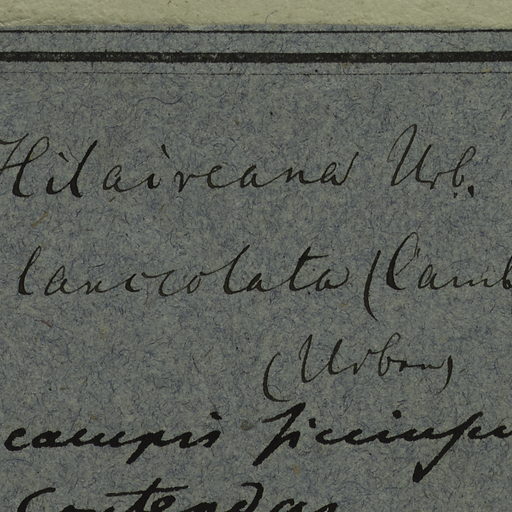 Hilaireana Urb.
lanceolata (Camb
(Urban)
campis siccis
Contendas